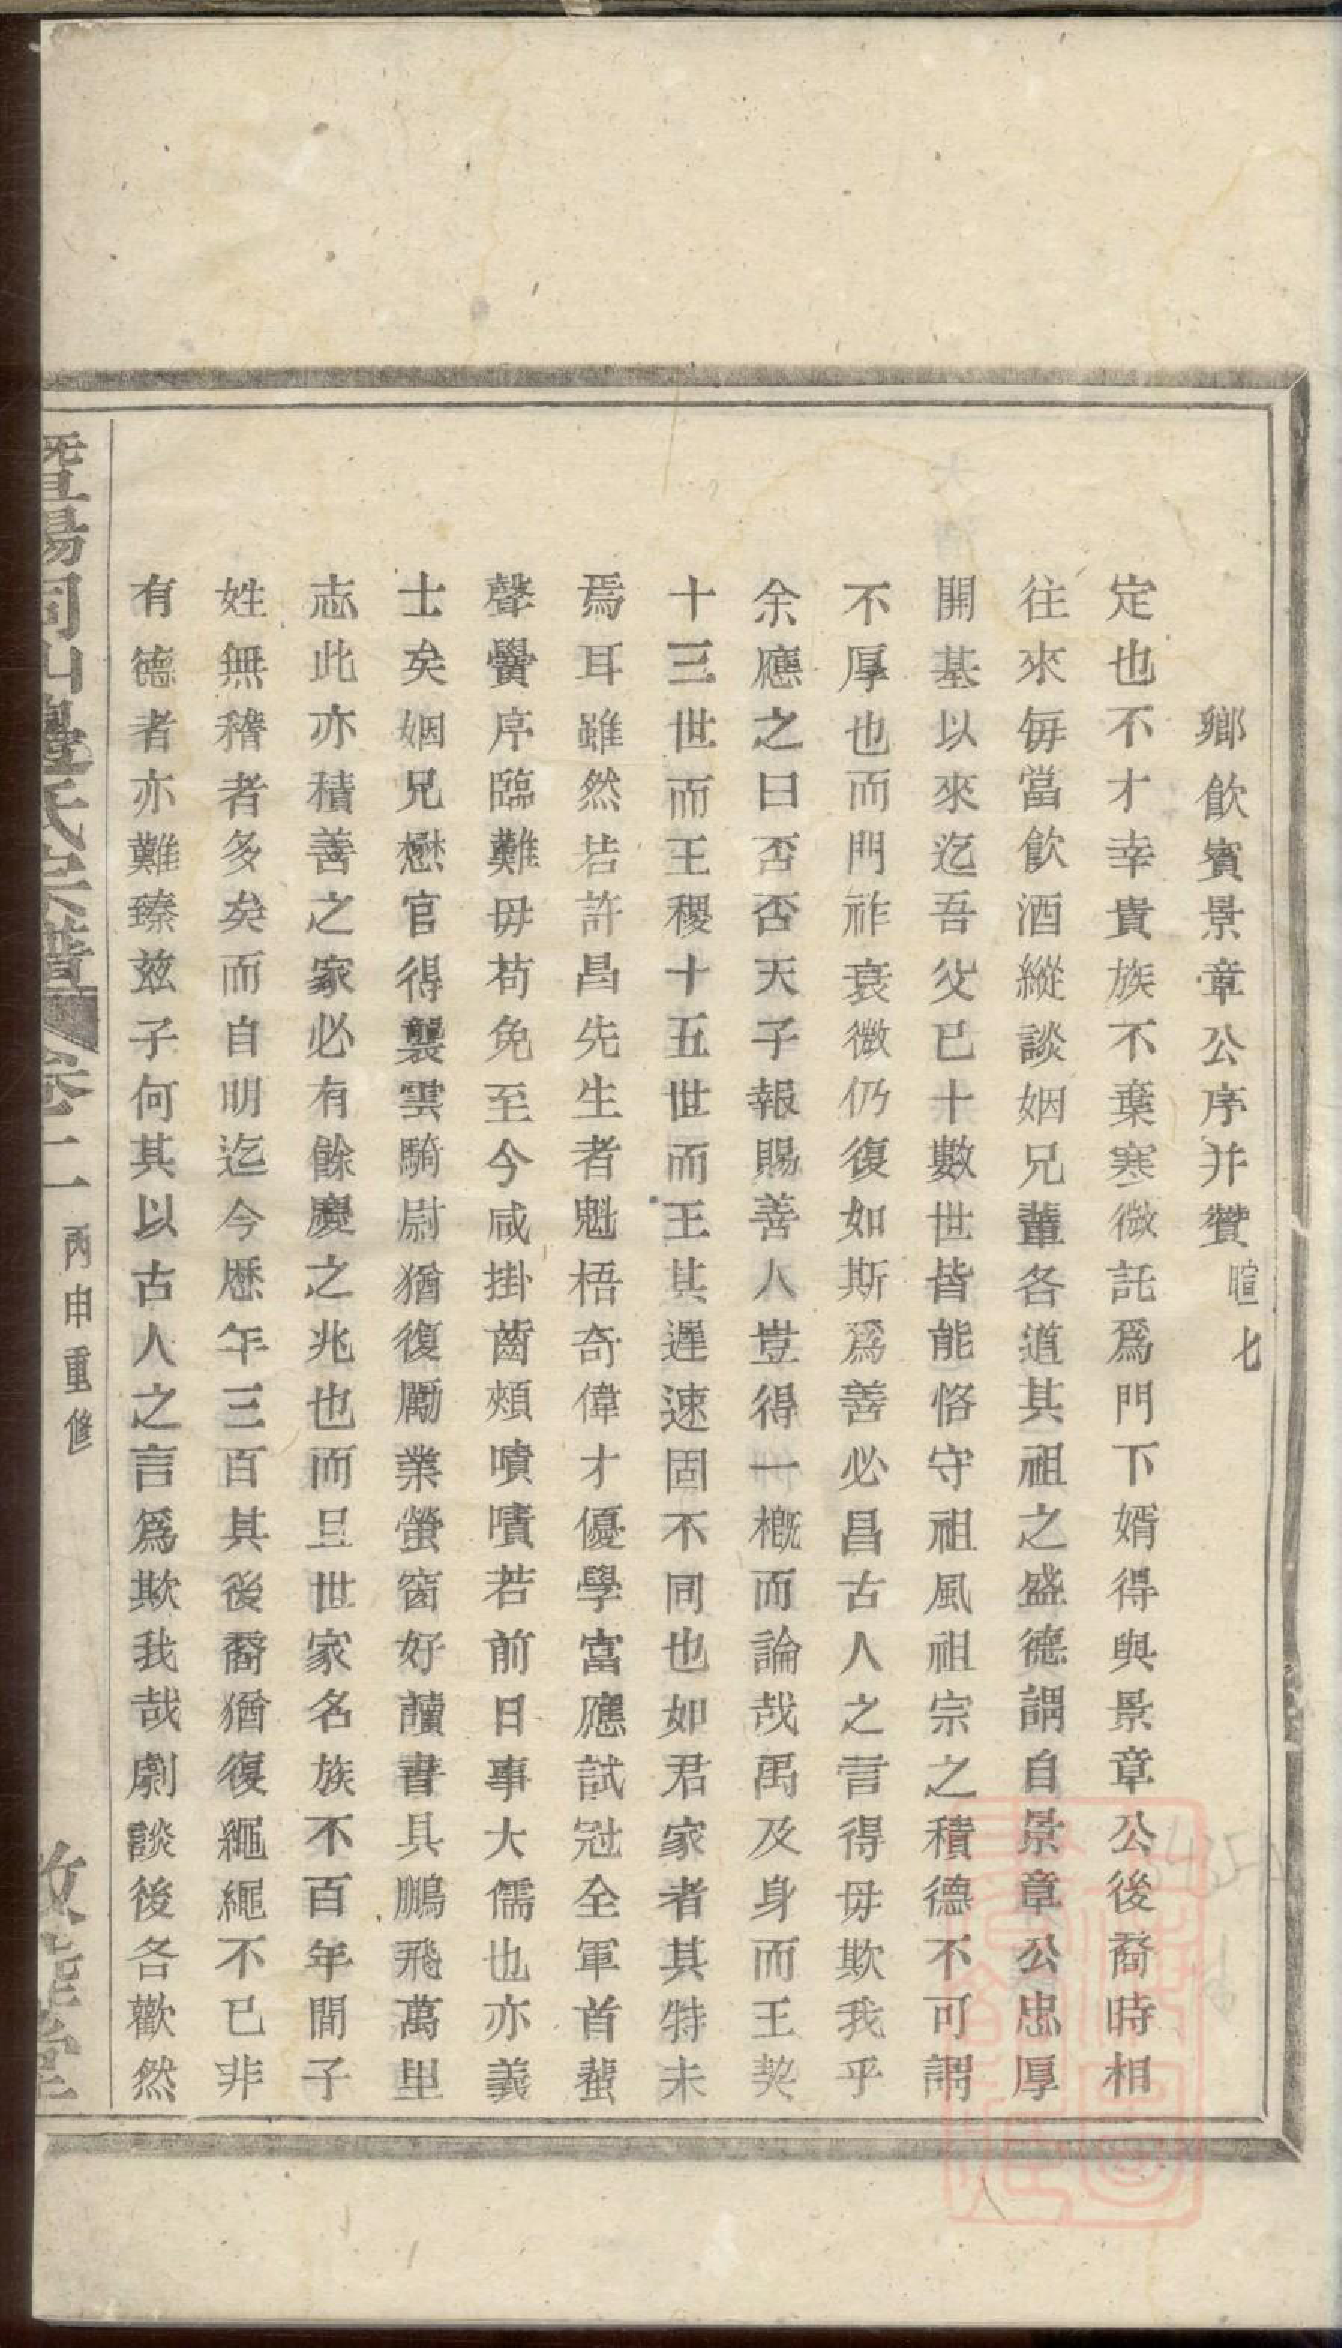 鄉飮賓景章公序并贊 暄七
定也不才幸貴族不棄寒微託爲門下婿得與景章公後裔時相
往來毎當飮酒縱談姻兄輩各道其祖之盛德謂自景章公忠厚
開基以來迄吾父已十數世皆能恪守祖風祖宗之積德不可謂
不厚也而門祚衰微仍復如斯爲善必昌古人之言得毋欺我乎
余應之曰否否天子報賜善人豈得一槪而論哉禹及身而王契
十三世而王稷十五世而王其遲速固不同也如君家者其特未
焉耳雖然若許昌先生者魁梧奇偉才優學富應試冠全軍首蜚
聲黌序臨難毋苟免至今咸掛齒頰嘖嘖若前日事大儒也亦義
士矣姻兄懋官得襲雲騎尉猶復勵業螢窗好讀書具鵬飛萬里
志此亦積善之家必有餘慶之兆也而旦世家名族不百年間子
姓無稽者多矣而自明迄今歷年三百其後裔猶復繩繩不已非
有德者亦難臻兹子何其以古人之言爲欺我哉劇談後各歡然
暨陽同山邊氏宗譜 卷二 丙申重修 敦睦堂